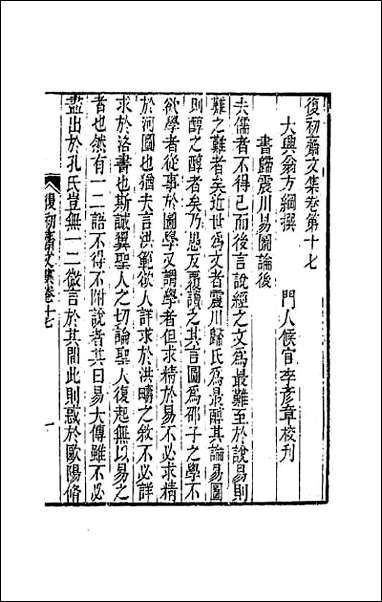 復初齋文集卷第十七
大興翁方綱撰　門人侯官李彥章校刊
書歸震川易圖論後
夫儒者不得已而後言說經之文為最難至於說易則
難之難者矣近世為文者震川歸氏為最醇其論易圖
則醇之醇者矣乃愚反覆讀之其言圖為邵子之學不
欲學者從事於圖學又謂學者但求精於易不必求精
於河圖也猶夫言洪範欲人詳求於洪疇之敘不必詳
求於洛書也斯誠翼聖人之切論聖人復起無以易之
者也然有一二語不得不附說者其曰易大傳雖不必
盡出於孔氏豈無一二微言於其間此則惑於歐陽脩
復初齋文集卷十七
一